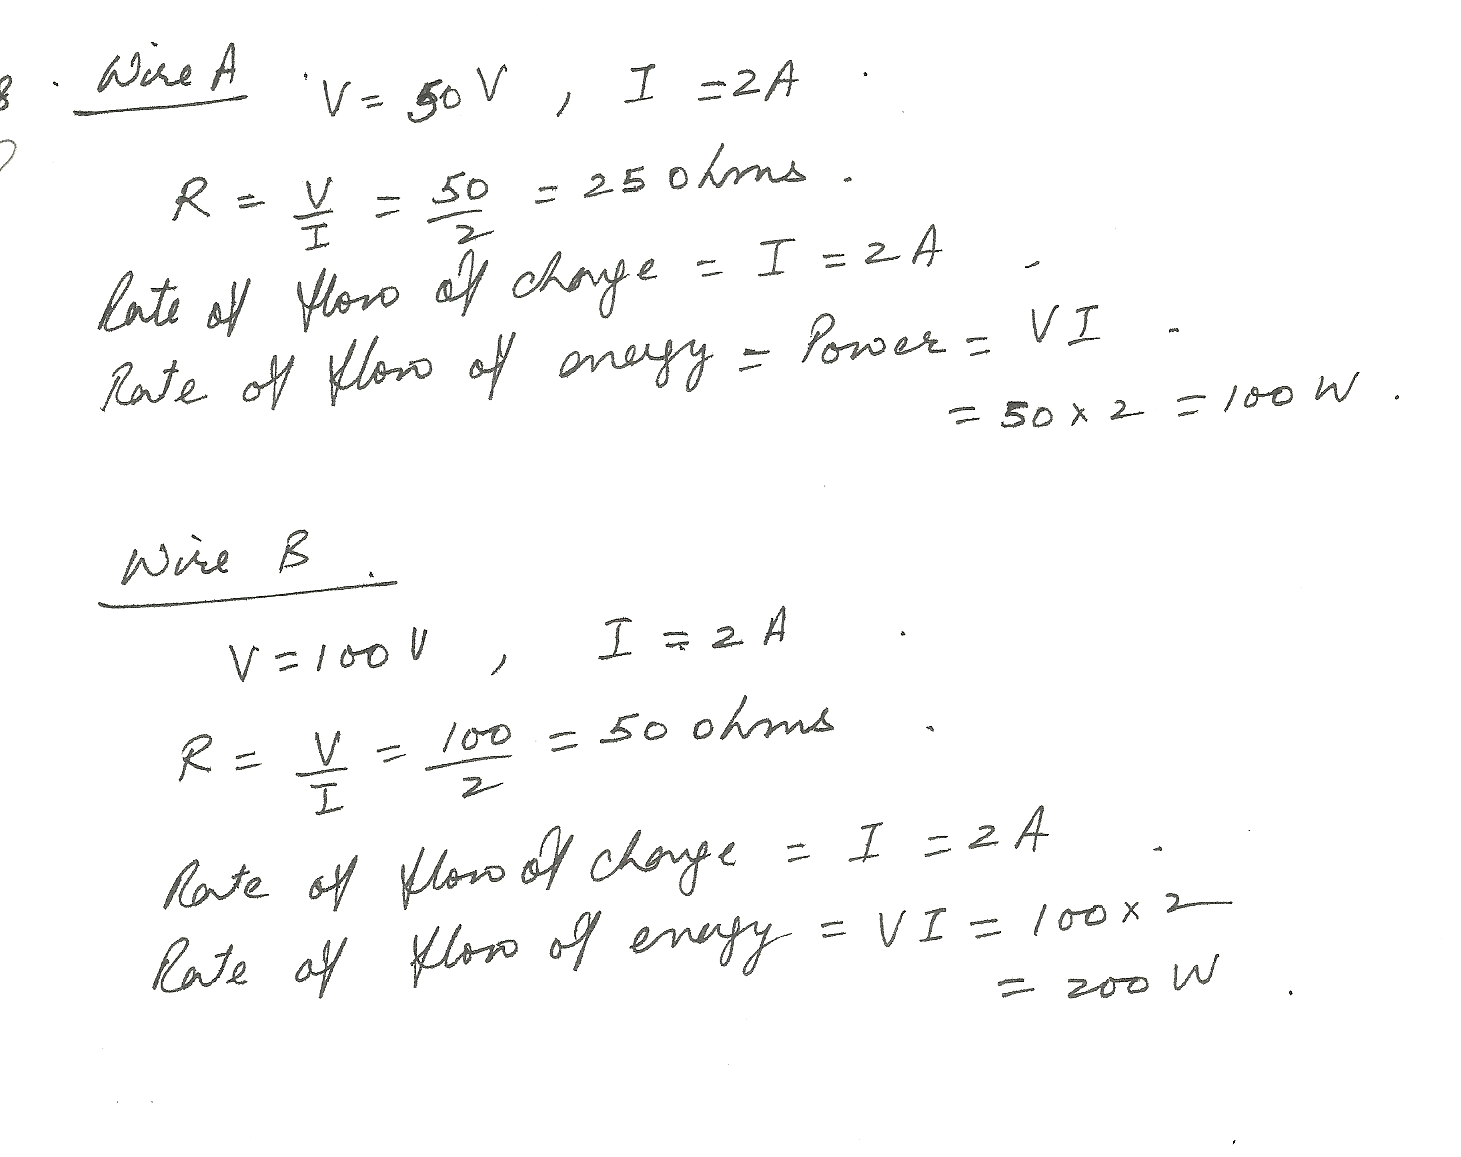 8. Wire A V = 50 V , I = 2A .
R = V/I = 50/2 = 25 ohms .
Rate of flow of charge = I = 2A .
Rate of flow of energy = Power = VI .
= 50 x 2 = 100 W .
Wire B .
V = 100 V , I = 2 A .
R = V/I = 100/2 = 50 ohms .
Rate of flow of charge = I = 2 A .
Rate of flow of energy = VI = 100 x 2
= 200 W .